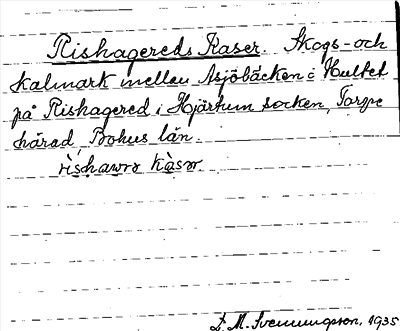 Rishagereds Raser. Skogs- och
kalmark mellan Asjöbäcken o Hultet
på Rishagered i Hjärtum socken, Torpe
härad, Bohus län.
D. M. Svenningsson, 1935